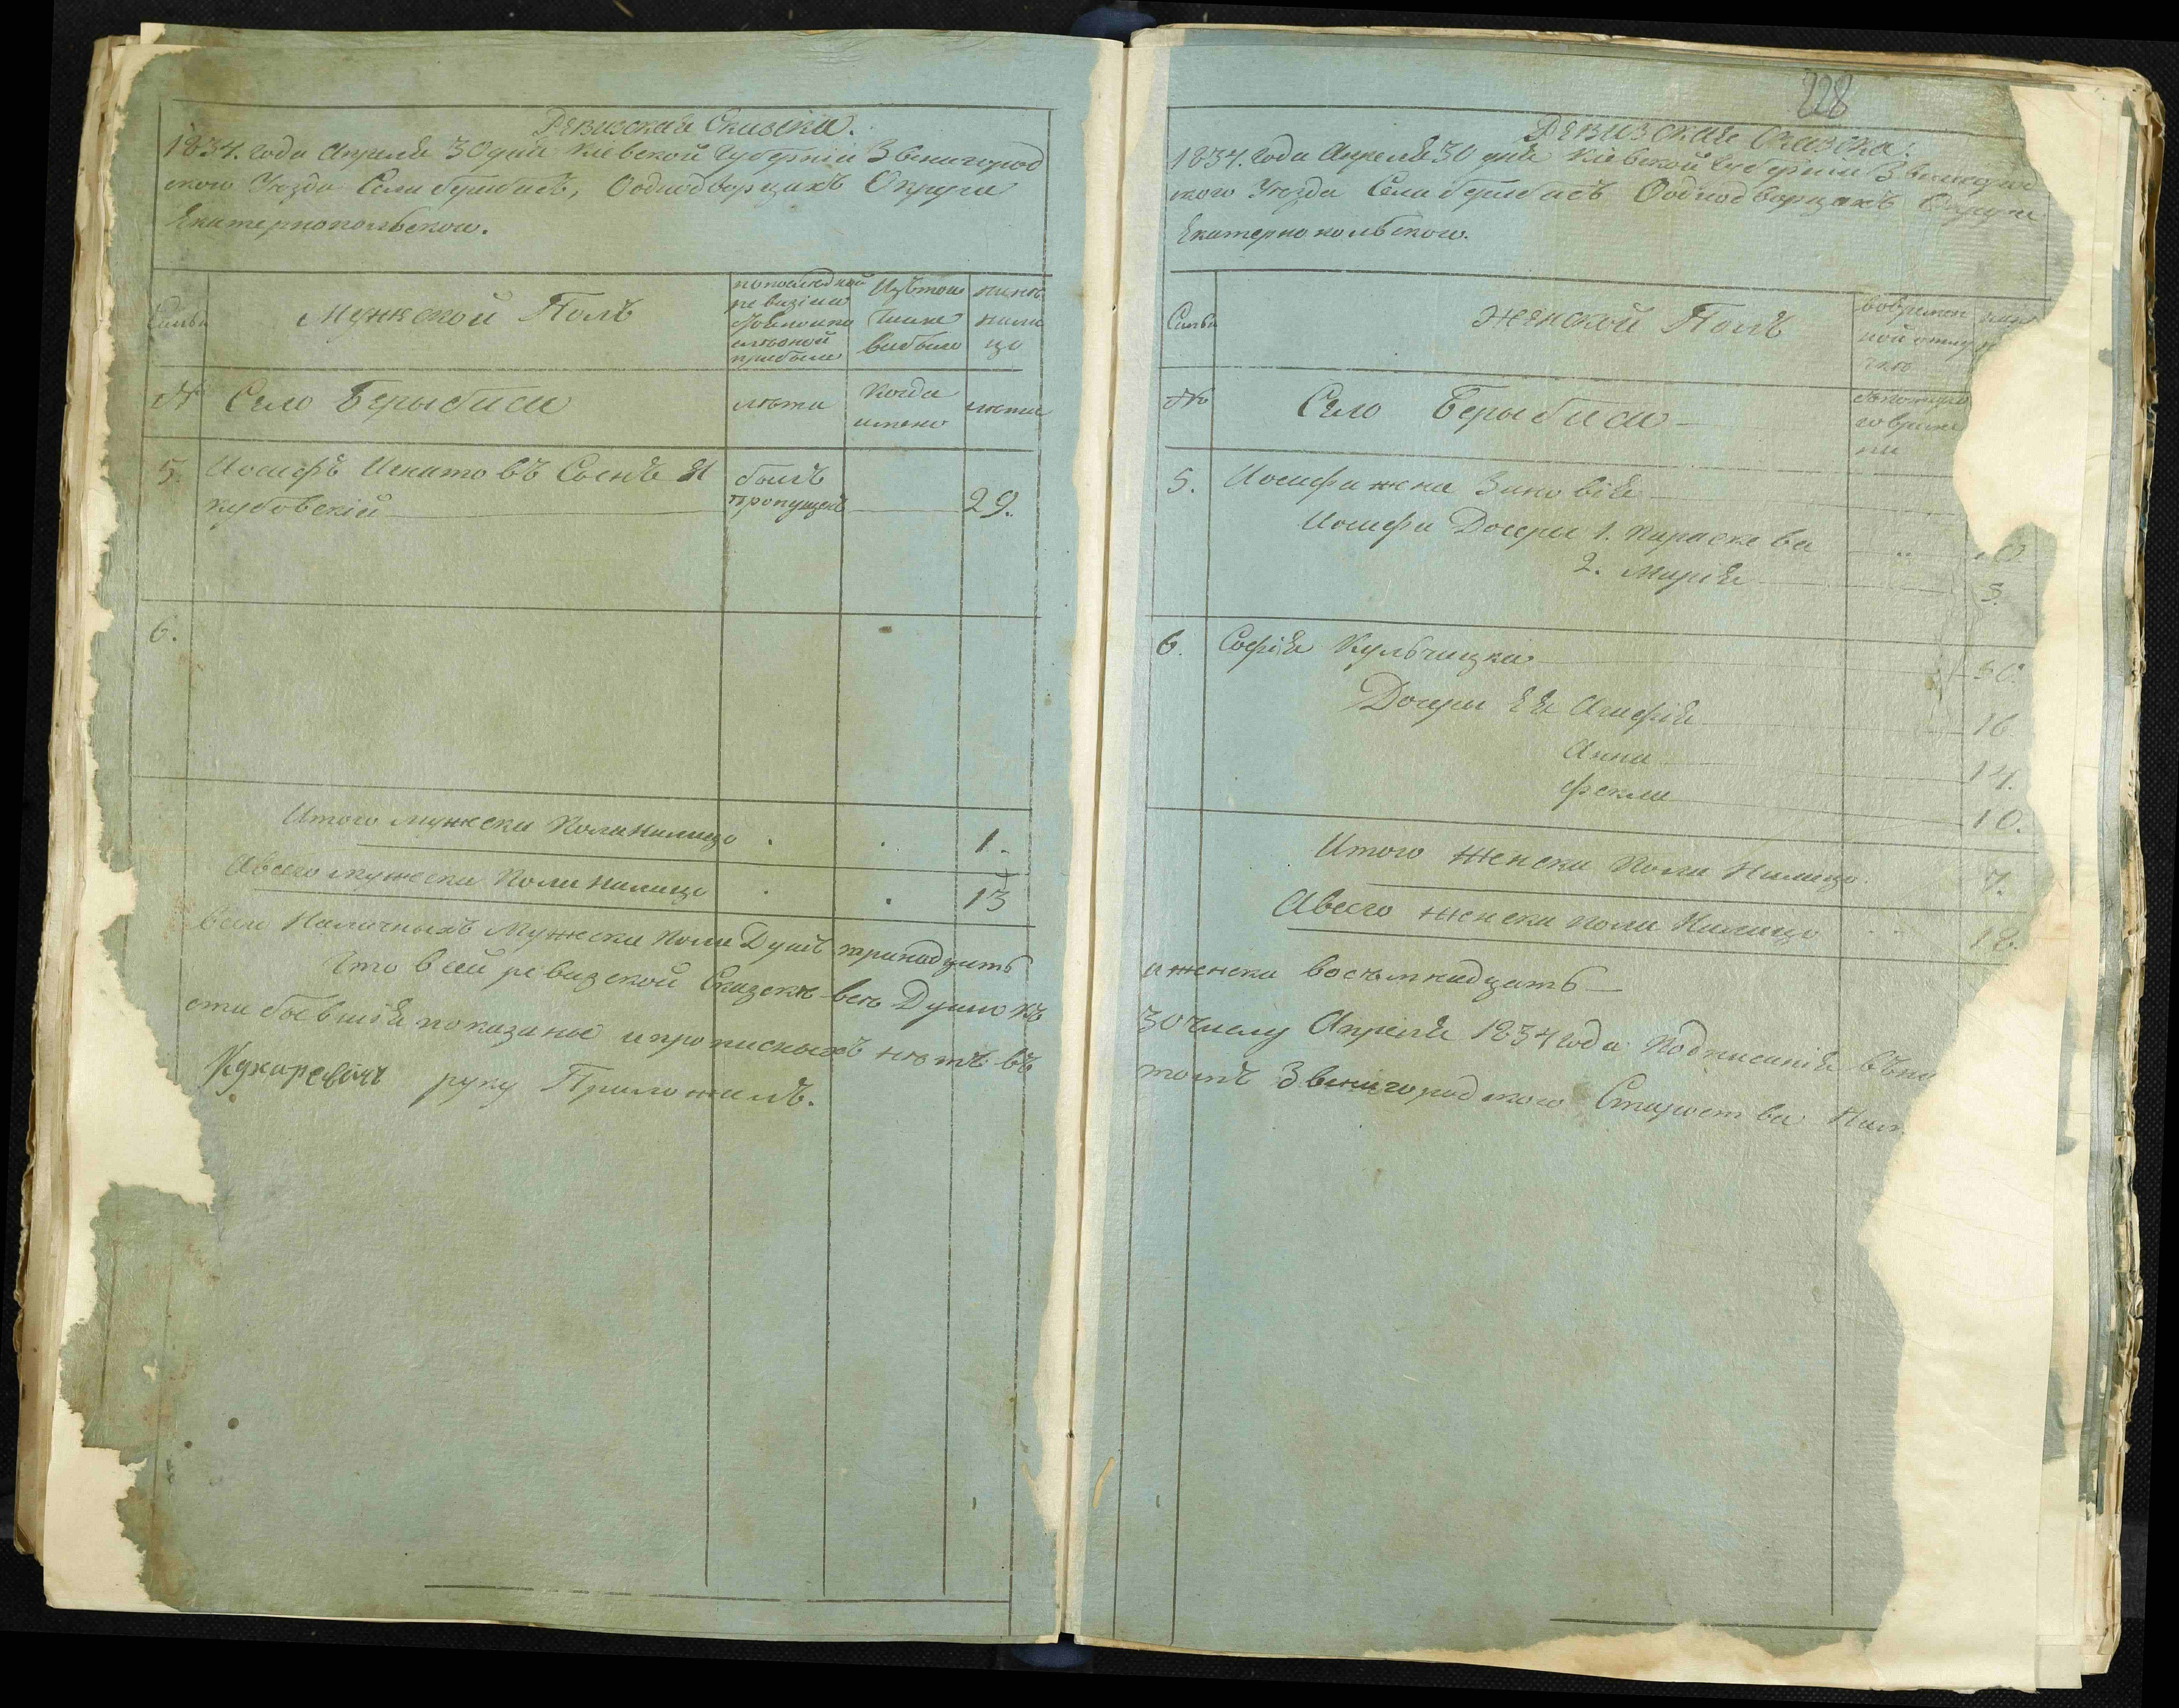 Ревизская Сказка.
1834. года Апреля 30 дня Кіевской Губерніи Звенигород
ского Уезда Села Берыбисъ, Ооднодворцахъ Округи
Екатеринопольского.
Мужской Полъ
по последной
ревизіи
прибыли
Изътого
Числа
выбыло
ныне
нали
цо
№ Село Берыбиси
лета
Когда
имено
лета
5. Иосифъ Игнатовъ Сынъ Я
кубовскій
былъ
пропущенъ
29.
6.
Итого мужеска Пола Налицо 1.
Авсего мужеска Пола налицо 13
Всей Наличныхъ Мужеска Пола Душъ тринадцать
Что всей ревизской Сказске все Душы къ
сти бывшія показаные ипрописныхъ нетъ въ
руку Приложилъ.
228
Ревизская Сказска.
1834. года Апреля 30 дня Кіевской Губерніи Звенигород
ского Уезда Села Берыбисъ Ооднодворцахъ Округи
Екатеринопольского.
Женской Полъ
вовремен
ной отлу
чке
№ Село Берыбиси
го време
ни
5. Иосифа жена Зиновія
Иосифа Дочеры 1. Параскева
2. Марія 3.
6. Софія Кульчицка 50.
Дочеры Ея Агафія 16.
Анна 14.
Фекла 10.
Итого Женска Пола Налицо 7.
Авсего женска пола Налицо 18.
аженска восъмнадцать
30 числу Апреля 1834 года Подписанія
томъ Звенигородского Староства